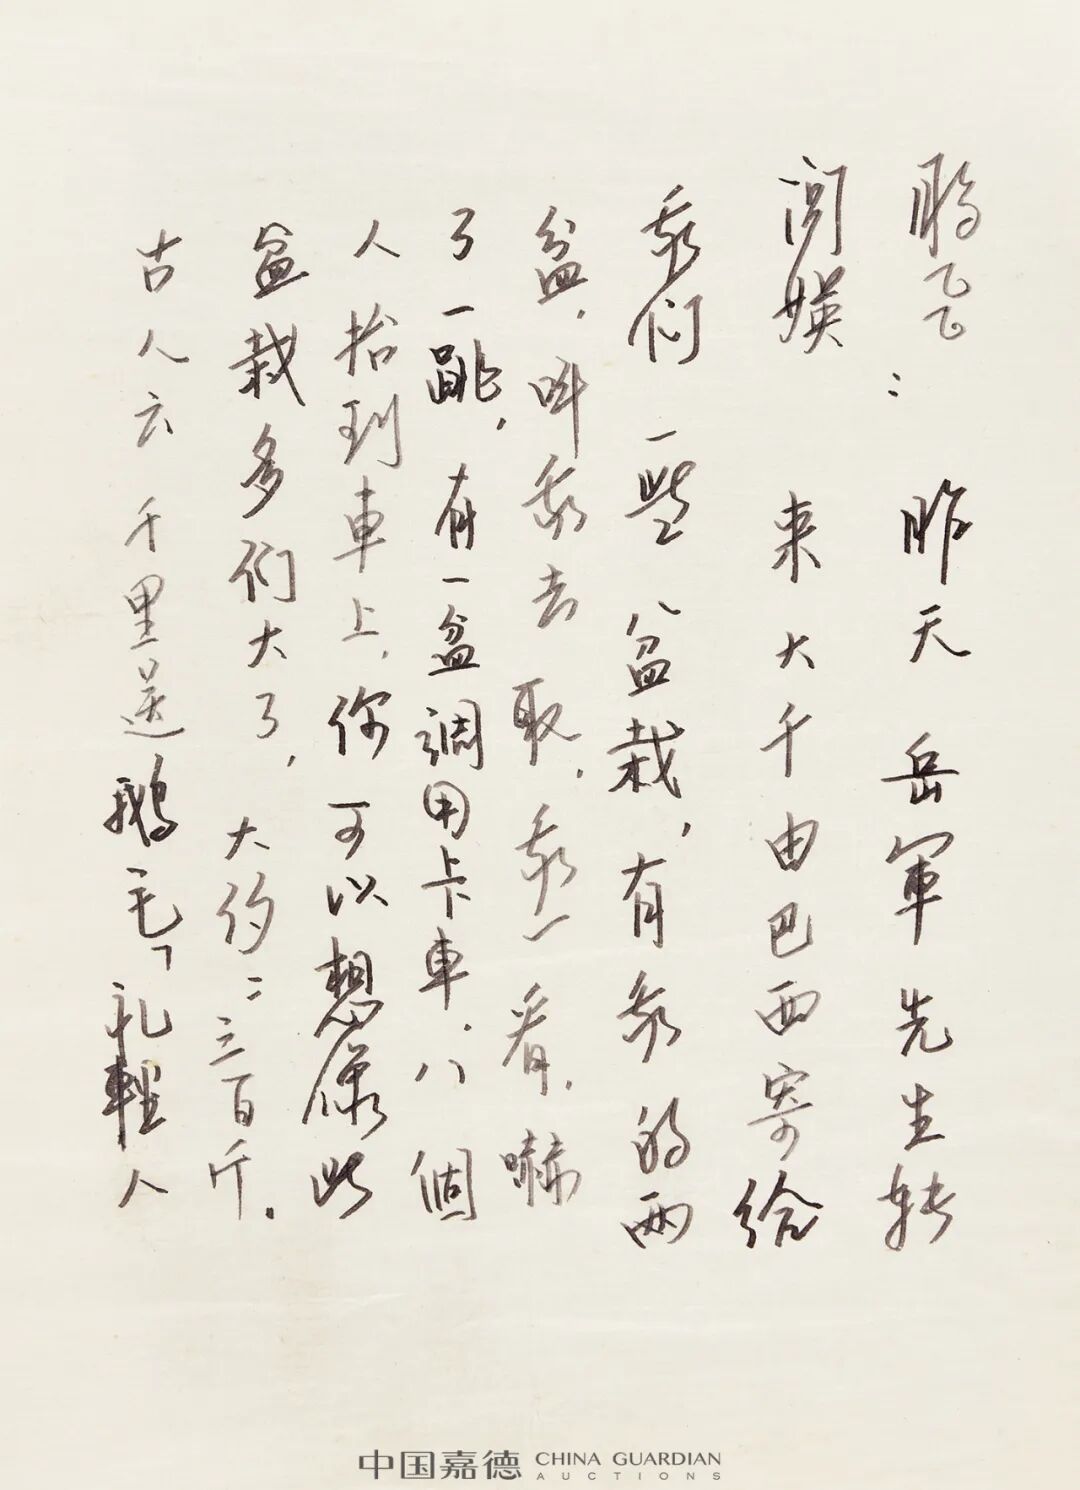 ：昨天岳軍先生转
媖 来大千由巴西寄给
我们一些盆栽，有我的两
盆，叫我去取，我一看，嚇
了一跳，有一盆調用卡車，八個
人抬到車上，你可以想像此
盆栽多们大了，大约二三百斤。
古人云千里送鵝毛「礼輕人
中国嘉德 CHINA GUARDIAN
AUCTIONS